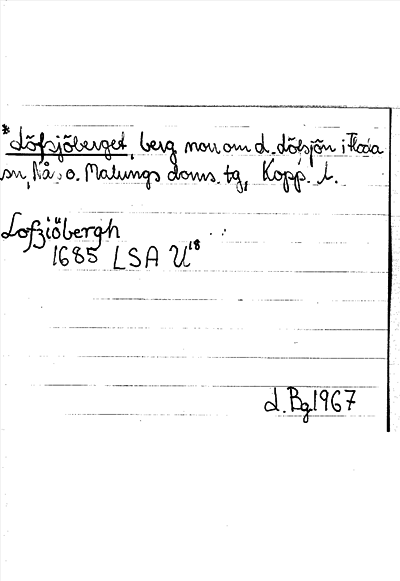 *Löfsjöberget, berg norr om d. Lövsjön i Floda
sn, Nås o. Malungs doms. tg, Kopp. l.
Lofziöbergh
1685 LSA U18
L. Bg 1967